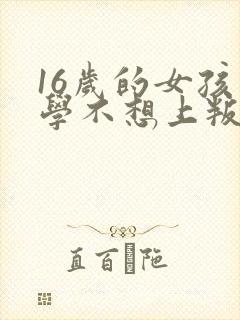 16歲的女孩
學不想上叛
直百陁